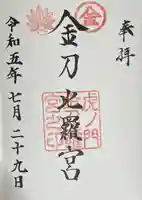 奉拝
金
金刀比羅宮
虎ノ門
令和五年七月二十九日